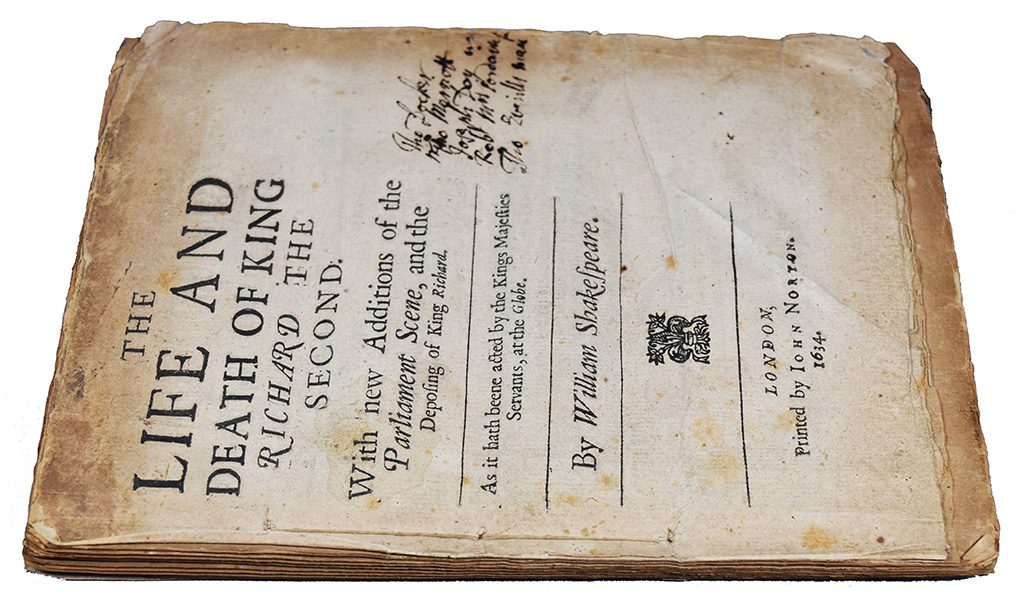 THE
LIFE AND
DEATH OF KING
RICHARD THE
SECOND.
With new Additions of the
Parliament Scene, and the
Depoſing of King Richard.
As it hath beene acted by the Kings Majeſties
Servants, at the Globe.
By William Shakeſpeare.
LONDON,
Printed by IOHN NORTON.
1634.